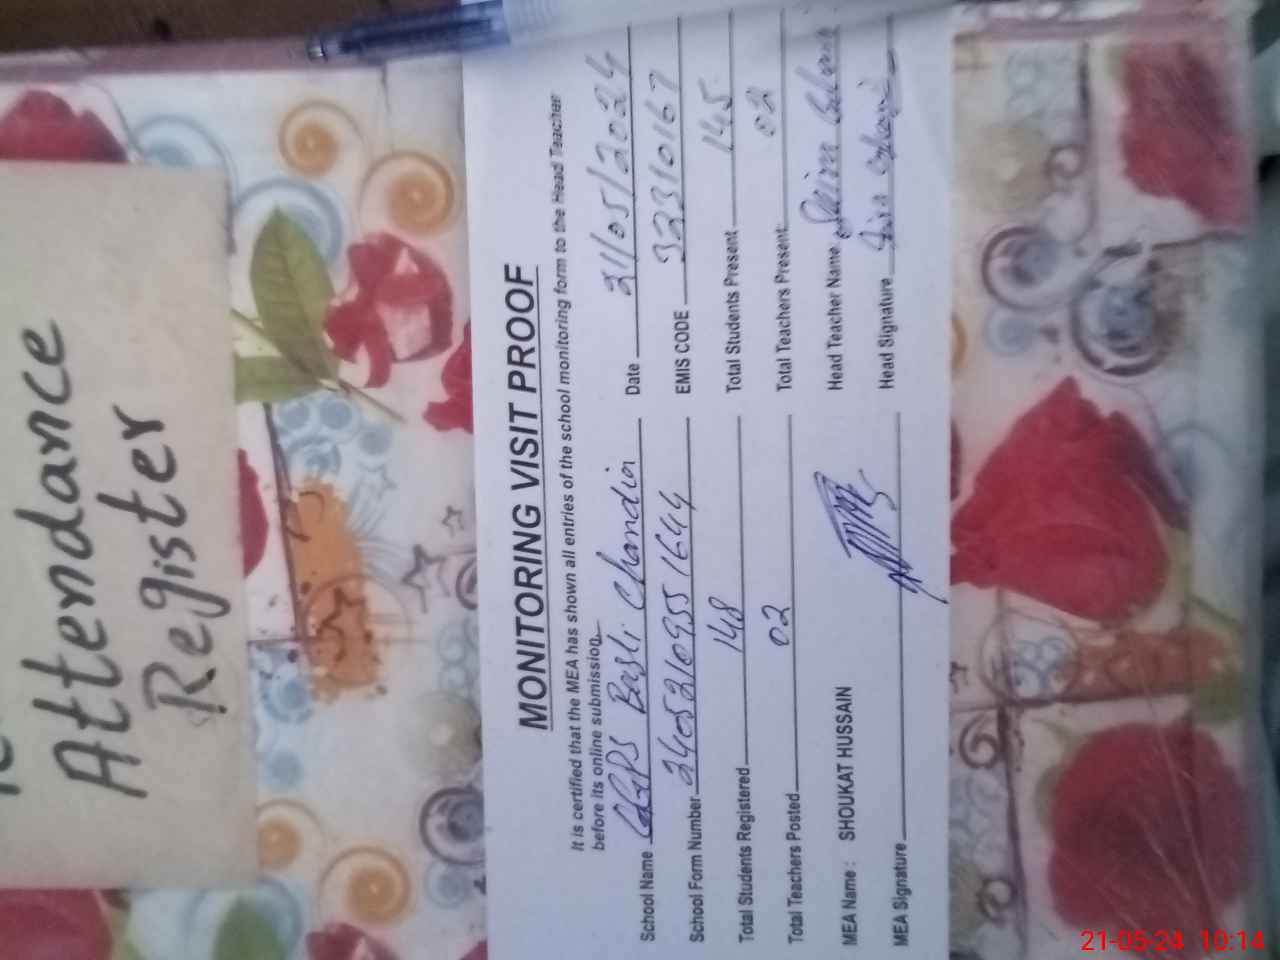 Attendance
Register
MONITORING VISIT PROOF
It is certified that the MEA has shown all entries of the school monitoring form to the Head Teacher
before its online submission.
School Name GGPS Basti Chandia Date 21/05/2024
School Form Number 24052109551644 EMIS CODE 32310167
Total Students Registered 148 Total Students Present 145
Total Teachers Posted 02 Total Teachers Present: 02
MEA Name : SHOUKAT HUSSAIN Head Teacher Name:
MEA Signature Head Signature
21-05-24 10:14